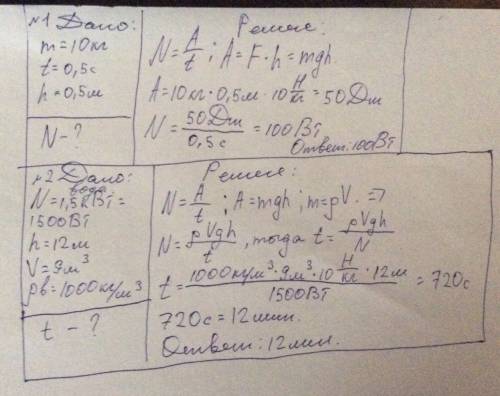 №1 Дано:
m = 10 кг
t = 0,5 с
h = 0,5 м
N - ?
Решение:
N = A/t ; A = F · h = mgh.
A = 10 кг · 0,5 м · 10 Н/кг = 50 Дж
N = 50 Дж / 0,5 с = 100 Вт
Ответ: 100 Вт
№2 Дано:
вода
N = 1,5 кВт =
1500 Вт
h = 12 м
V = 9 м³
ρв = 1000 кг/м³
t - ?
Решение:
N = A/t ; A = mgh ; m = ρV. =>
N = ρVgh/t , тогда t = ρVgh/N
t = 1000 кг/м³ · 9 м³ · 10 Н/кг · 12 м / 1500 Вт = 720 с
720 с = 12 мин.
Ответ: 12 мин.